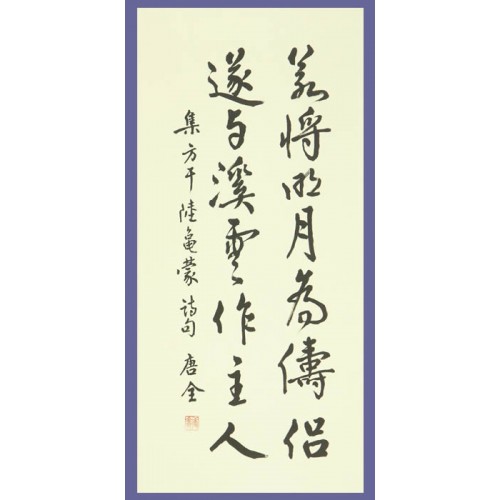 若將明月為儔侶
遂與溪雲作主人
集方干陸龜蒙詩句 唐全